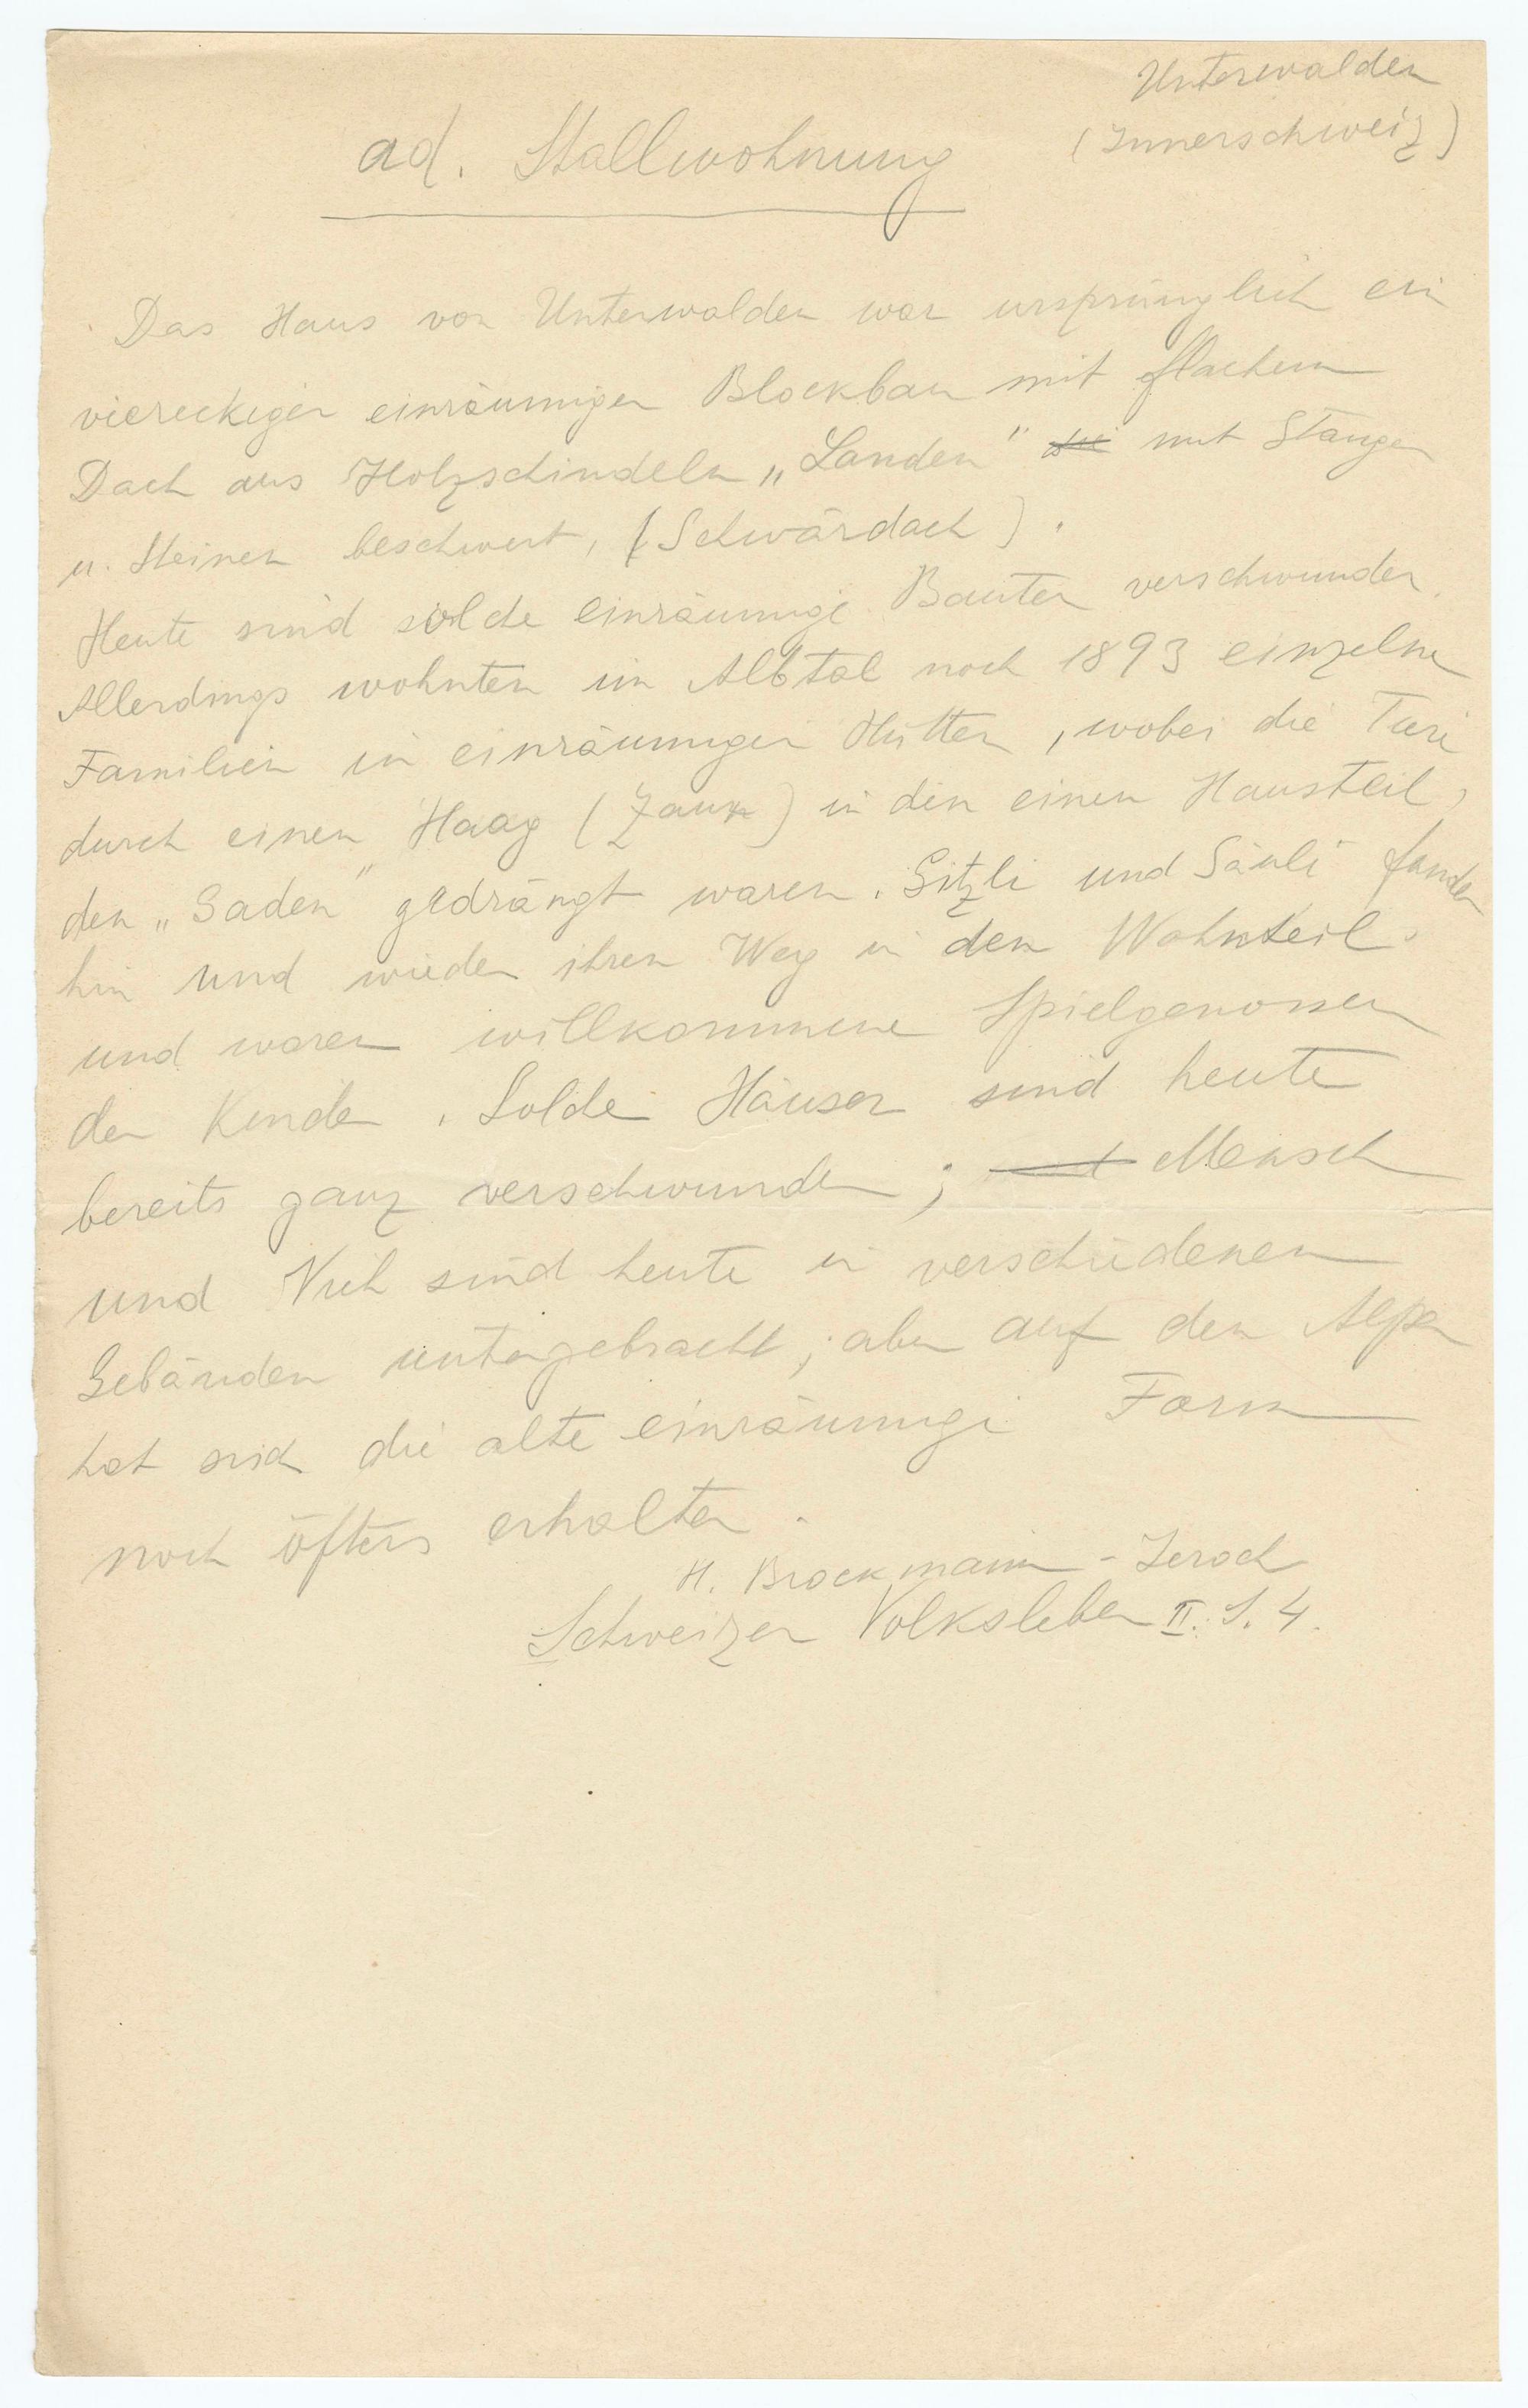 Unterwalden
(Innerschweiz)
ad. Stallwohnung
Das Haus von Unterwalden war ursprünglich ein
viereckiger einräumiger Blockbau mit flachem
Dach aus Holzschindeln „Landen" mit Stangen
u. Steinen beschwert, (Schwärdach).
Heute sind solche einräumige Bauten verschwunden.
Allerdings wohnten im Albtal noch 1893 einzelne
Familien in einräumigen Hütten, wobei die Tiere
durch einen Haag (Zaun) in den einen Hausteil,
den „Gaden" gedrängt waren. Gitzli und Säuli fanden
hin und wieder ihren Weg in den Wohnteil
und waren willkommene Spielgenossen
der Kinder. Solche Häuser sind heute
bereits ganz verschwunden; Mensch
und Vieh sind heute in verschiedenen
Gebäuden untergebracht; aber auf den Alpen
hat sich die alte einräumige Form
noch öfters erhalten.
H. Brockmann-Jeroch
Schweizer Volksleben II. S. 4.